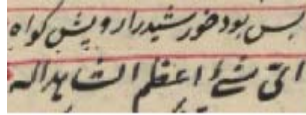 بس بود خورشید را رویش کواه
ای شئ اعظم الشاهد اله